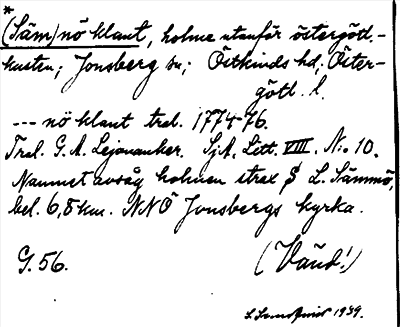 *
(Säm)nö klant, holme utanför östergötl.-
kusten; Jonsberg sn; Östkinds hd, Öster-
götl. l.
--- nö klant tral. 1774-76.
Tral. G. A. Lejonanker. SjA, Litt. VIII. N:o 10.
Namnet avsåg holmen strax S L. Sämmö,
bel. 6,8 km. NNÖ Jonsbergs kyrka.
G. 56. (Vänd!)
1939.